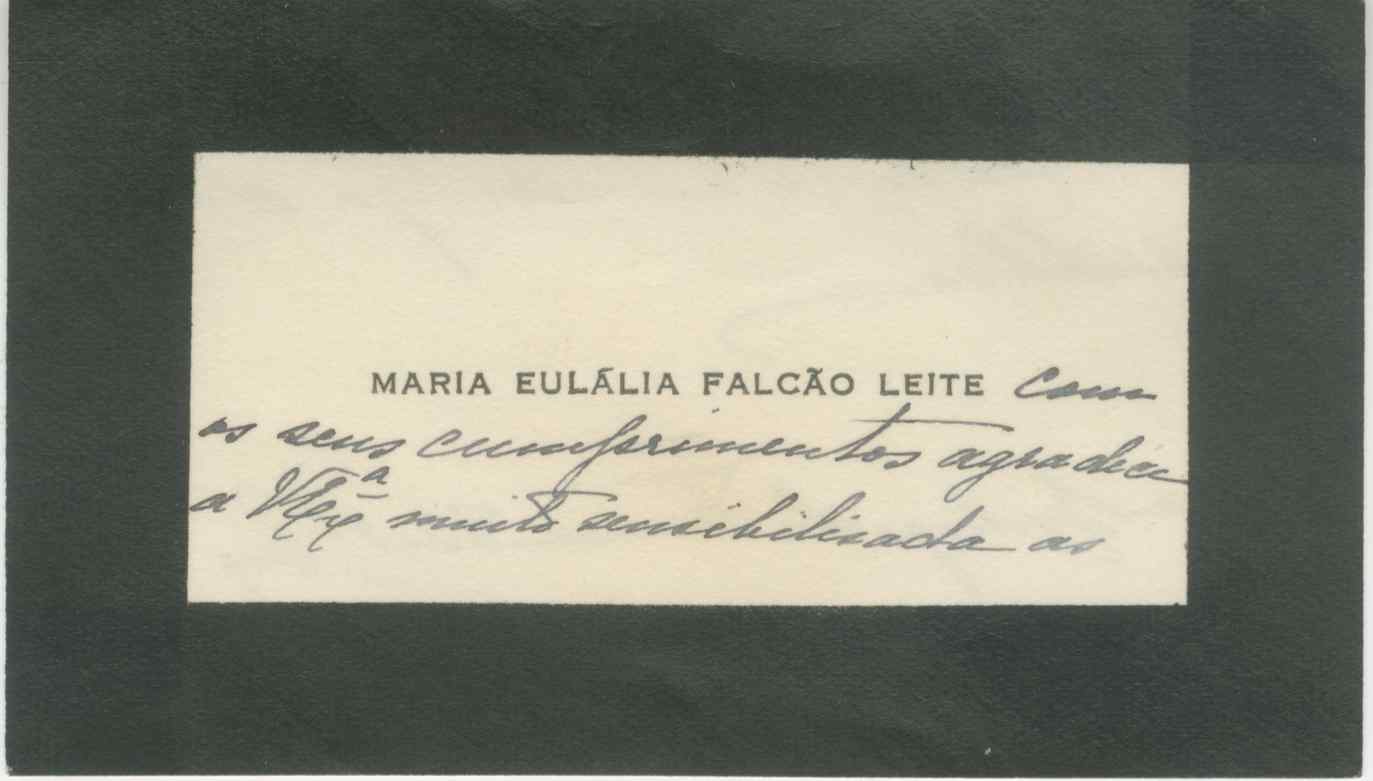 MARIA EULÁLIA FALCÃO LEITE com
os seus cumprimentos agradece
a V Exª muito sensibilisada as